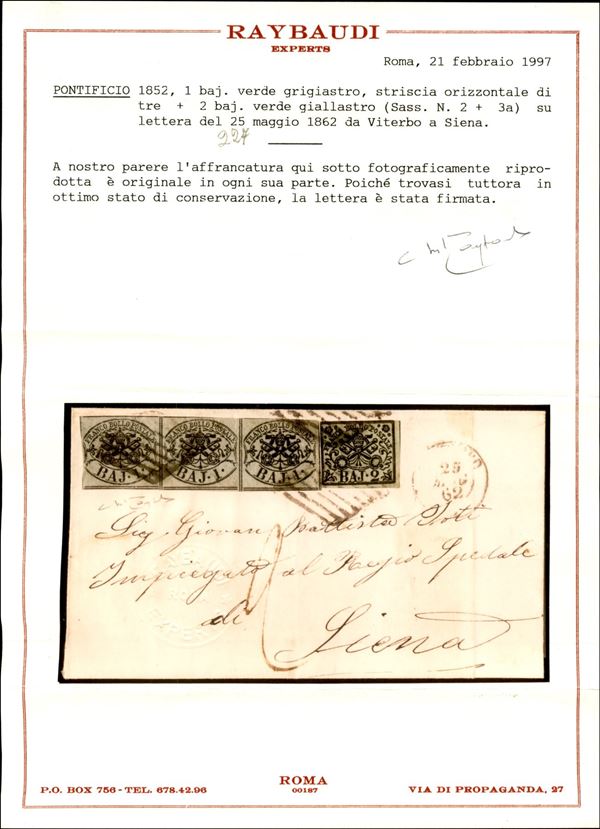 RAYBAUDI
EXPERTS
Roma, 21 febbraio 1997
PONTIFICIO 1852, 1 baj. verde grigiastro, striscia orizzontale di
tre + 2 baj. verde giallastro (Sass. N. 2 + 3a) su
lettera del 25 maggio 1862 da Viterbo a Siena.
227
A nostro parere l'affrancatura qui sotto fotograficamente ripro-
dotta è originale in ogni sua parte. Poiché trovasi tuttora in
ottimo stato di conservazione, la lettera è stata firmata.
FRANCO BOLLO POSTALE
BAJ. 1.
FRANCO BOLLO POSTALE
BAJ. 1.
FRANCO BOLLO POSTALE
BAJ. 1.
BAJ. 2.
25
62
Sig. Giovan Battista
Impiegato al Regio Spedale
di
Siena
ROMA
00187
P.O. BOX 756 - TEL. 678.42.96
VIA DI PROPAGANDA, 27